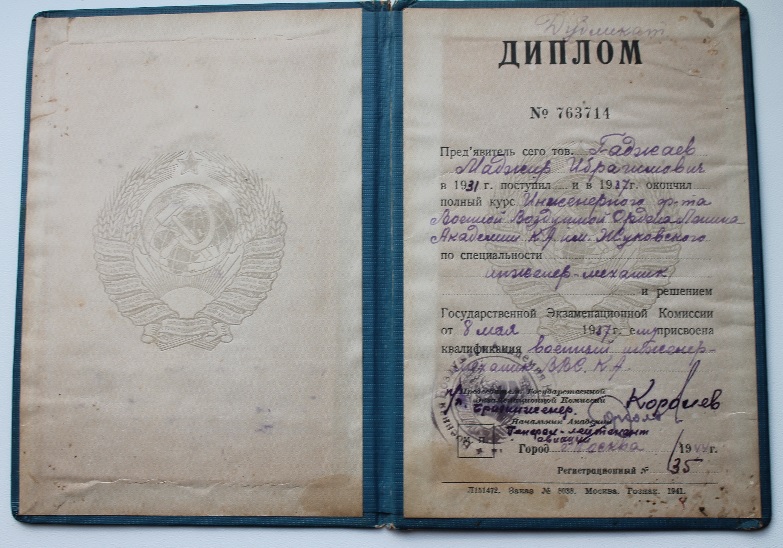 Дубликат
ДИПЛОМ
№ 763714
Пред'явитель сего тов. Гаджаев
Маджир Ибрагимович
в 1931 г. поступил и в 1937 г. окончил
полный курс Инженерного ф-та
Военной Воздушной Ордена Ленина
Академии К.А им. Жуковского
по специальности
инженер-механик
и решением
Государственной Экзаменационной Комиссии
от 8 мая 1937 г. ему присвоена
квалификация военный инженер-
механик ВВС.К.А.
Председатель Государственной
Экзаменационной Комиссии
Бригинженер. Королев
Начальник Академии
Генерал-лейтенант
авиации
Город Москва 1944 г.
Регистрационный № 35
Л151472. Заказ № 5038. Москва. Гознак. 1941.